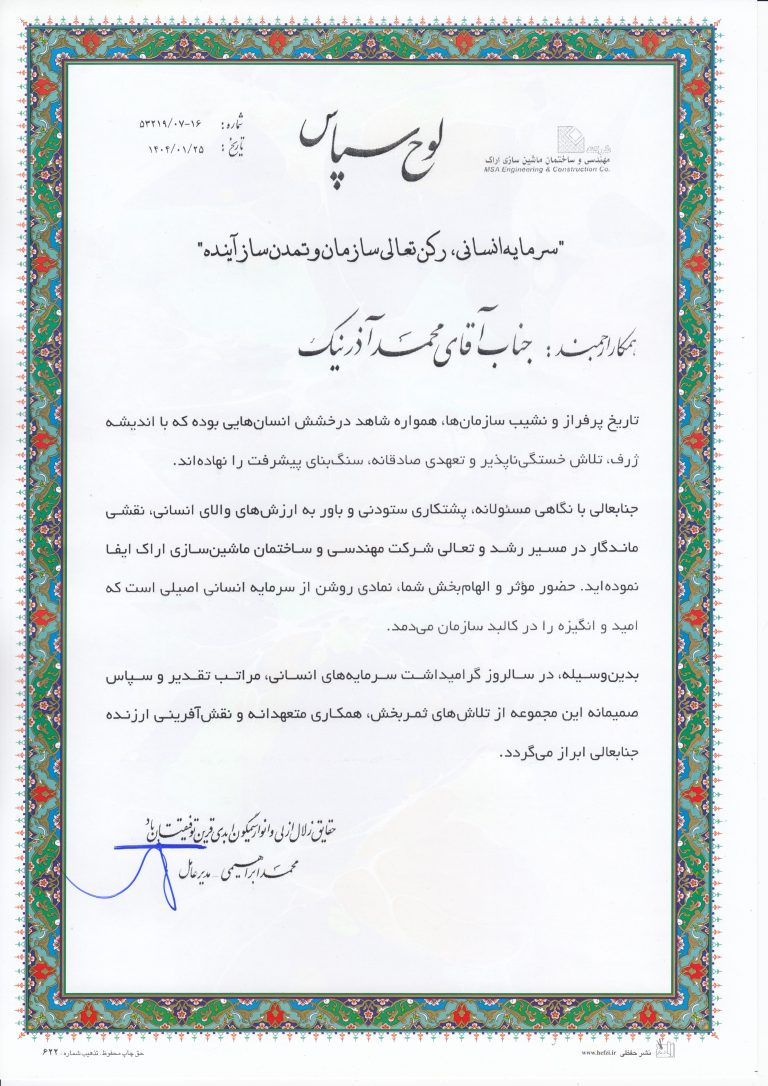 لوح سپاس
شماره: ۵۳۲۱۹/۰۷-۱۶
تاریخ: ۱۴۰۴/۰۱/۲۵
مهندسی و ساختمان ماشین سازی اراک
MSA Engineering & Construction Co.
"سرمایه انسانی، رکن تعالی سازمان و تمدن ساز آینده"
همکار ارجمند: جناب آقای محمد آذرنیک
تاریخ پرفراز و نشیب سازمان‌ها، همواره شاهد درخشش انسان‌هایی بوده که با اندیشه
ژرف، تلاش خستگی‌ناپذیر و تعهدی صادقانه، سنگ‌بنای پیشرفت را نهاده‌اند.
جنابعالی با نگاهی مسئولانه، پشتکاری ستودنی و باور به ارزش‌های والای انسانی، نقشی
ماندگار در مسیر رشد و تعالی شرکت مهندسی و ساختمان ماشین‌سازی اراک ایفا
نموده‌اید. حضور مؤثر و الهام‌بخش شما، نمادی روشن از سرمایه انسانی اصیلی است که
امید و انگیزه را در کالبد سازمان می‌دمد.
بدین‌وسیله، در سالروز گرامیداشت سرمایه‌های انسانی، مراتب تقدیر و سپاس
صمیمانه این مجموعه از تلاش‌های ثمربخش، همکاری متعهدانه و نقش‌آفرینی ارزنده
جنابعالی ابراز می‌گردد.
حقایق زلال ازلی و انوار سیمگون ابدی قرین توفیقتان باد
محمد ابراهیمی - مدیرعامل
نشر حفظی www.hefzi.ir
حق چاپ محفوظ. تذهیب شماره: ۶۲۲